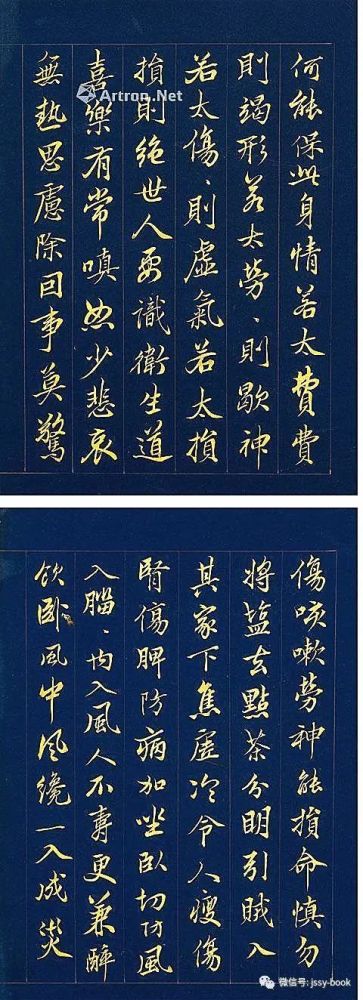 Artron.Net
何能保此身情若太費費
則竭形若太勞丶則歇神
若太傷丶則虛氣若太損
損則絕世人要識衛生道
喜樂有常嗔怒少悲哀
無思慮除回事莫驚
傷咳嗽勞神能損命慎勿
將盐去點茶分明引賊入
其家下焦虛冷令人瘦傷
腎傷脾防病加坐臥切防風
入腦丶內入風人不壽更兼醉
飲臥風中風纔一入成災
微信号: jssy-book